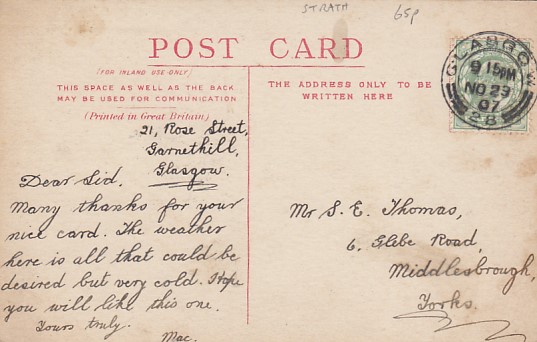 STRATH
65p
POST CARD
(FOR INLAND USE ONLY)
THIS SPACE AS WELL AS THE BACK
MAY BE USED FOR COMMUNICATION
(Printed in Great Britain)
THE ADDRESS ONLY TO BE
WRITTEN HERE
GLASGOW
9 15PM
NO 29
07
28
21, Rose Street,
Garnethill,
Glasgow.
Dear Sid.
Many thanks for your
nice card. The weather
here is all that could be
desired but very cold. Hope
you will like this one.
Yours truly.
Mac.
Mr S. E. Thomas,
6, Glebe Road,
Middlesbrough,
Yorks.